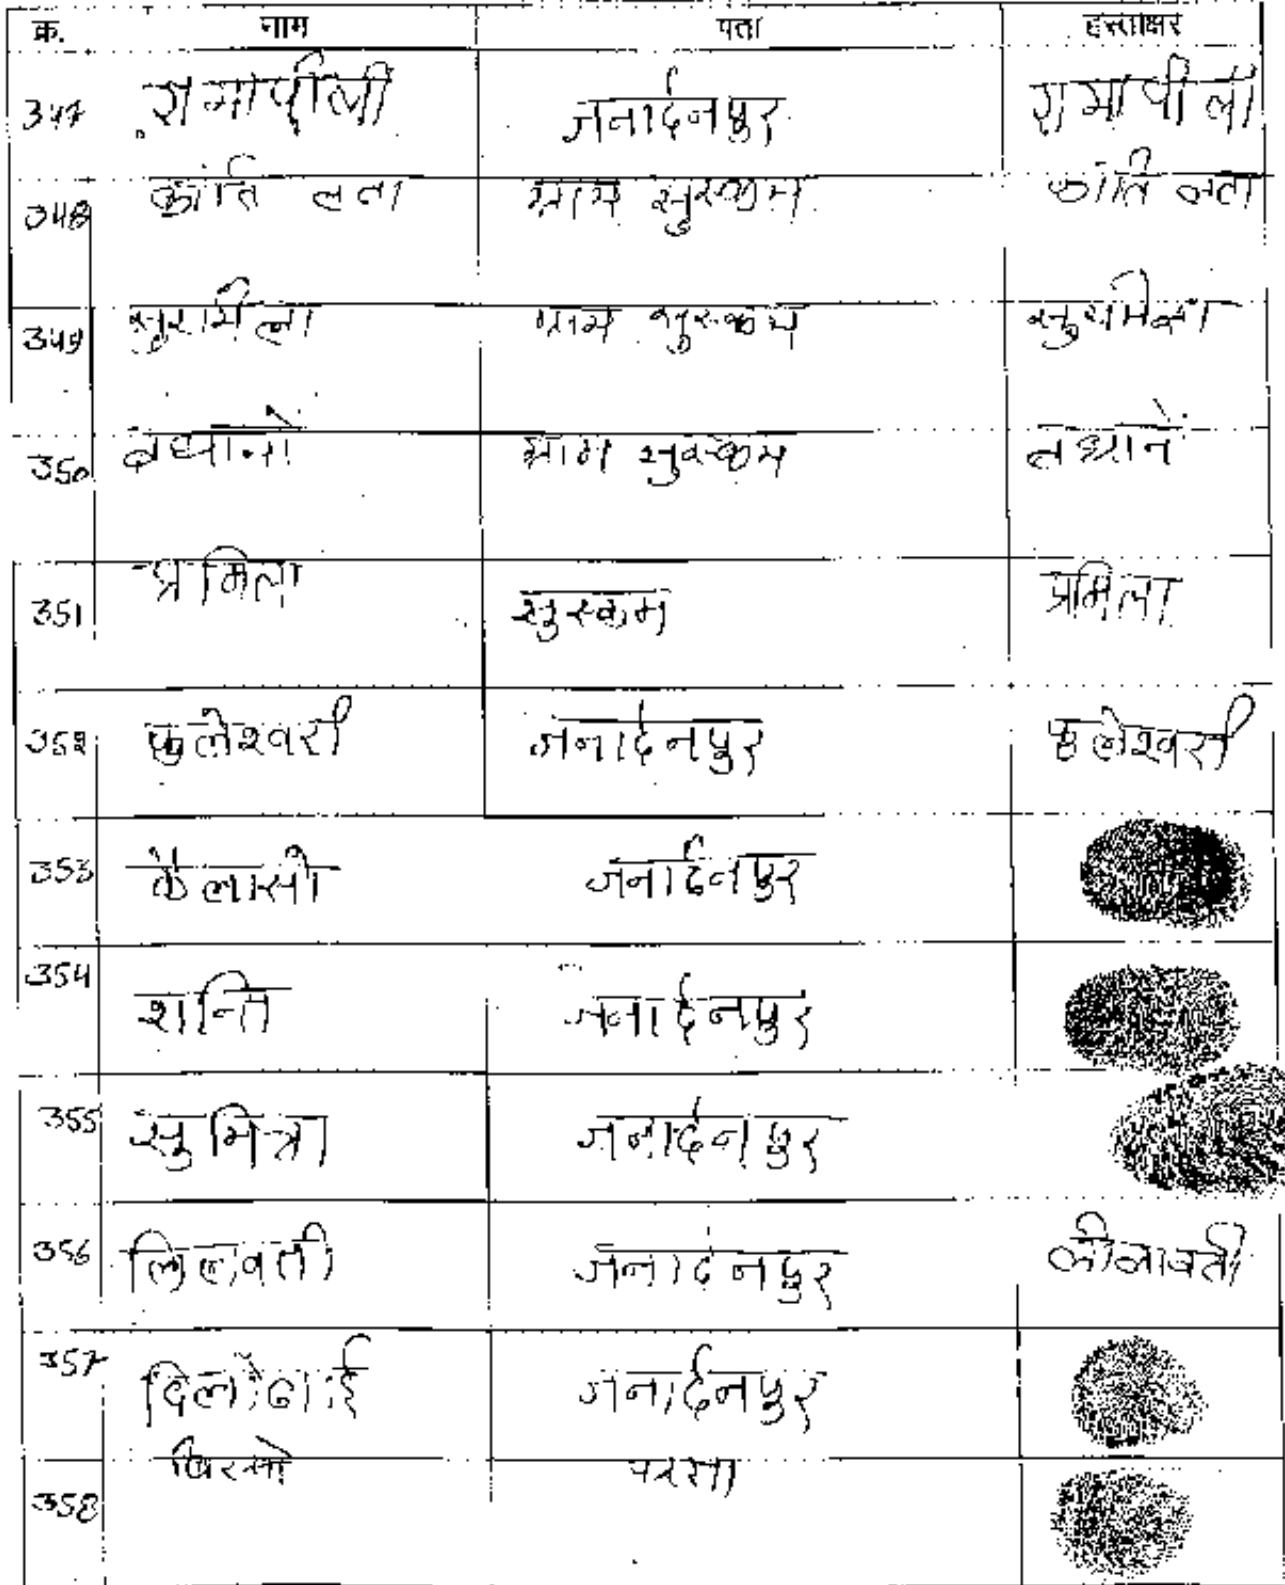 क्र. नाम पता हस्ताक्षर
347 रामापीली जनार्दनपुर रामापीली
348 कांति लता ग्राम सुरकम कांति लता
349 ग्राम
350 ग्राम
351 प्रमिला सुस्कम प्रमिला
352 फुलेश्वरी जनार्दनपुर फुलेश्वरी
353 कैलासी जनार्दनपुर
354 शान्ति जनार्दनपुर
355 सुमित्रा जनार्दनपुर
356 लिलावती जनार्दनपुर लीलावती
357 जनार्दनपुर
358 बिरसो परसा